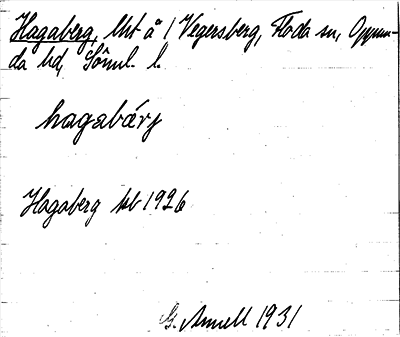 Hagaberg, lht å 1 Vegersberg, Floda sn, Oppun-
da hd, Söml. l.
hagabärj
Hagaberg jb 1926
G. Annell 1931